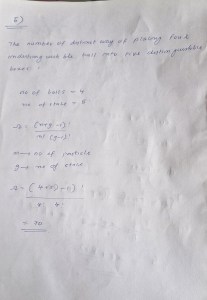 5)
The number of distinct way of placing four
indistinguishable ball into five distinguishable
boxes :
no of balls = 4
no of state = 5
Ω = (n+g-1)!
n! (g-1)!
n → no of particle
g → no of state
Ω = (4+5-1)!